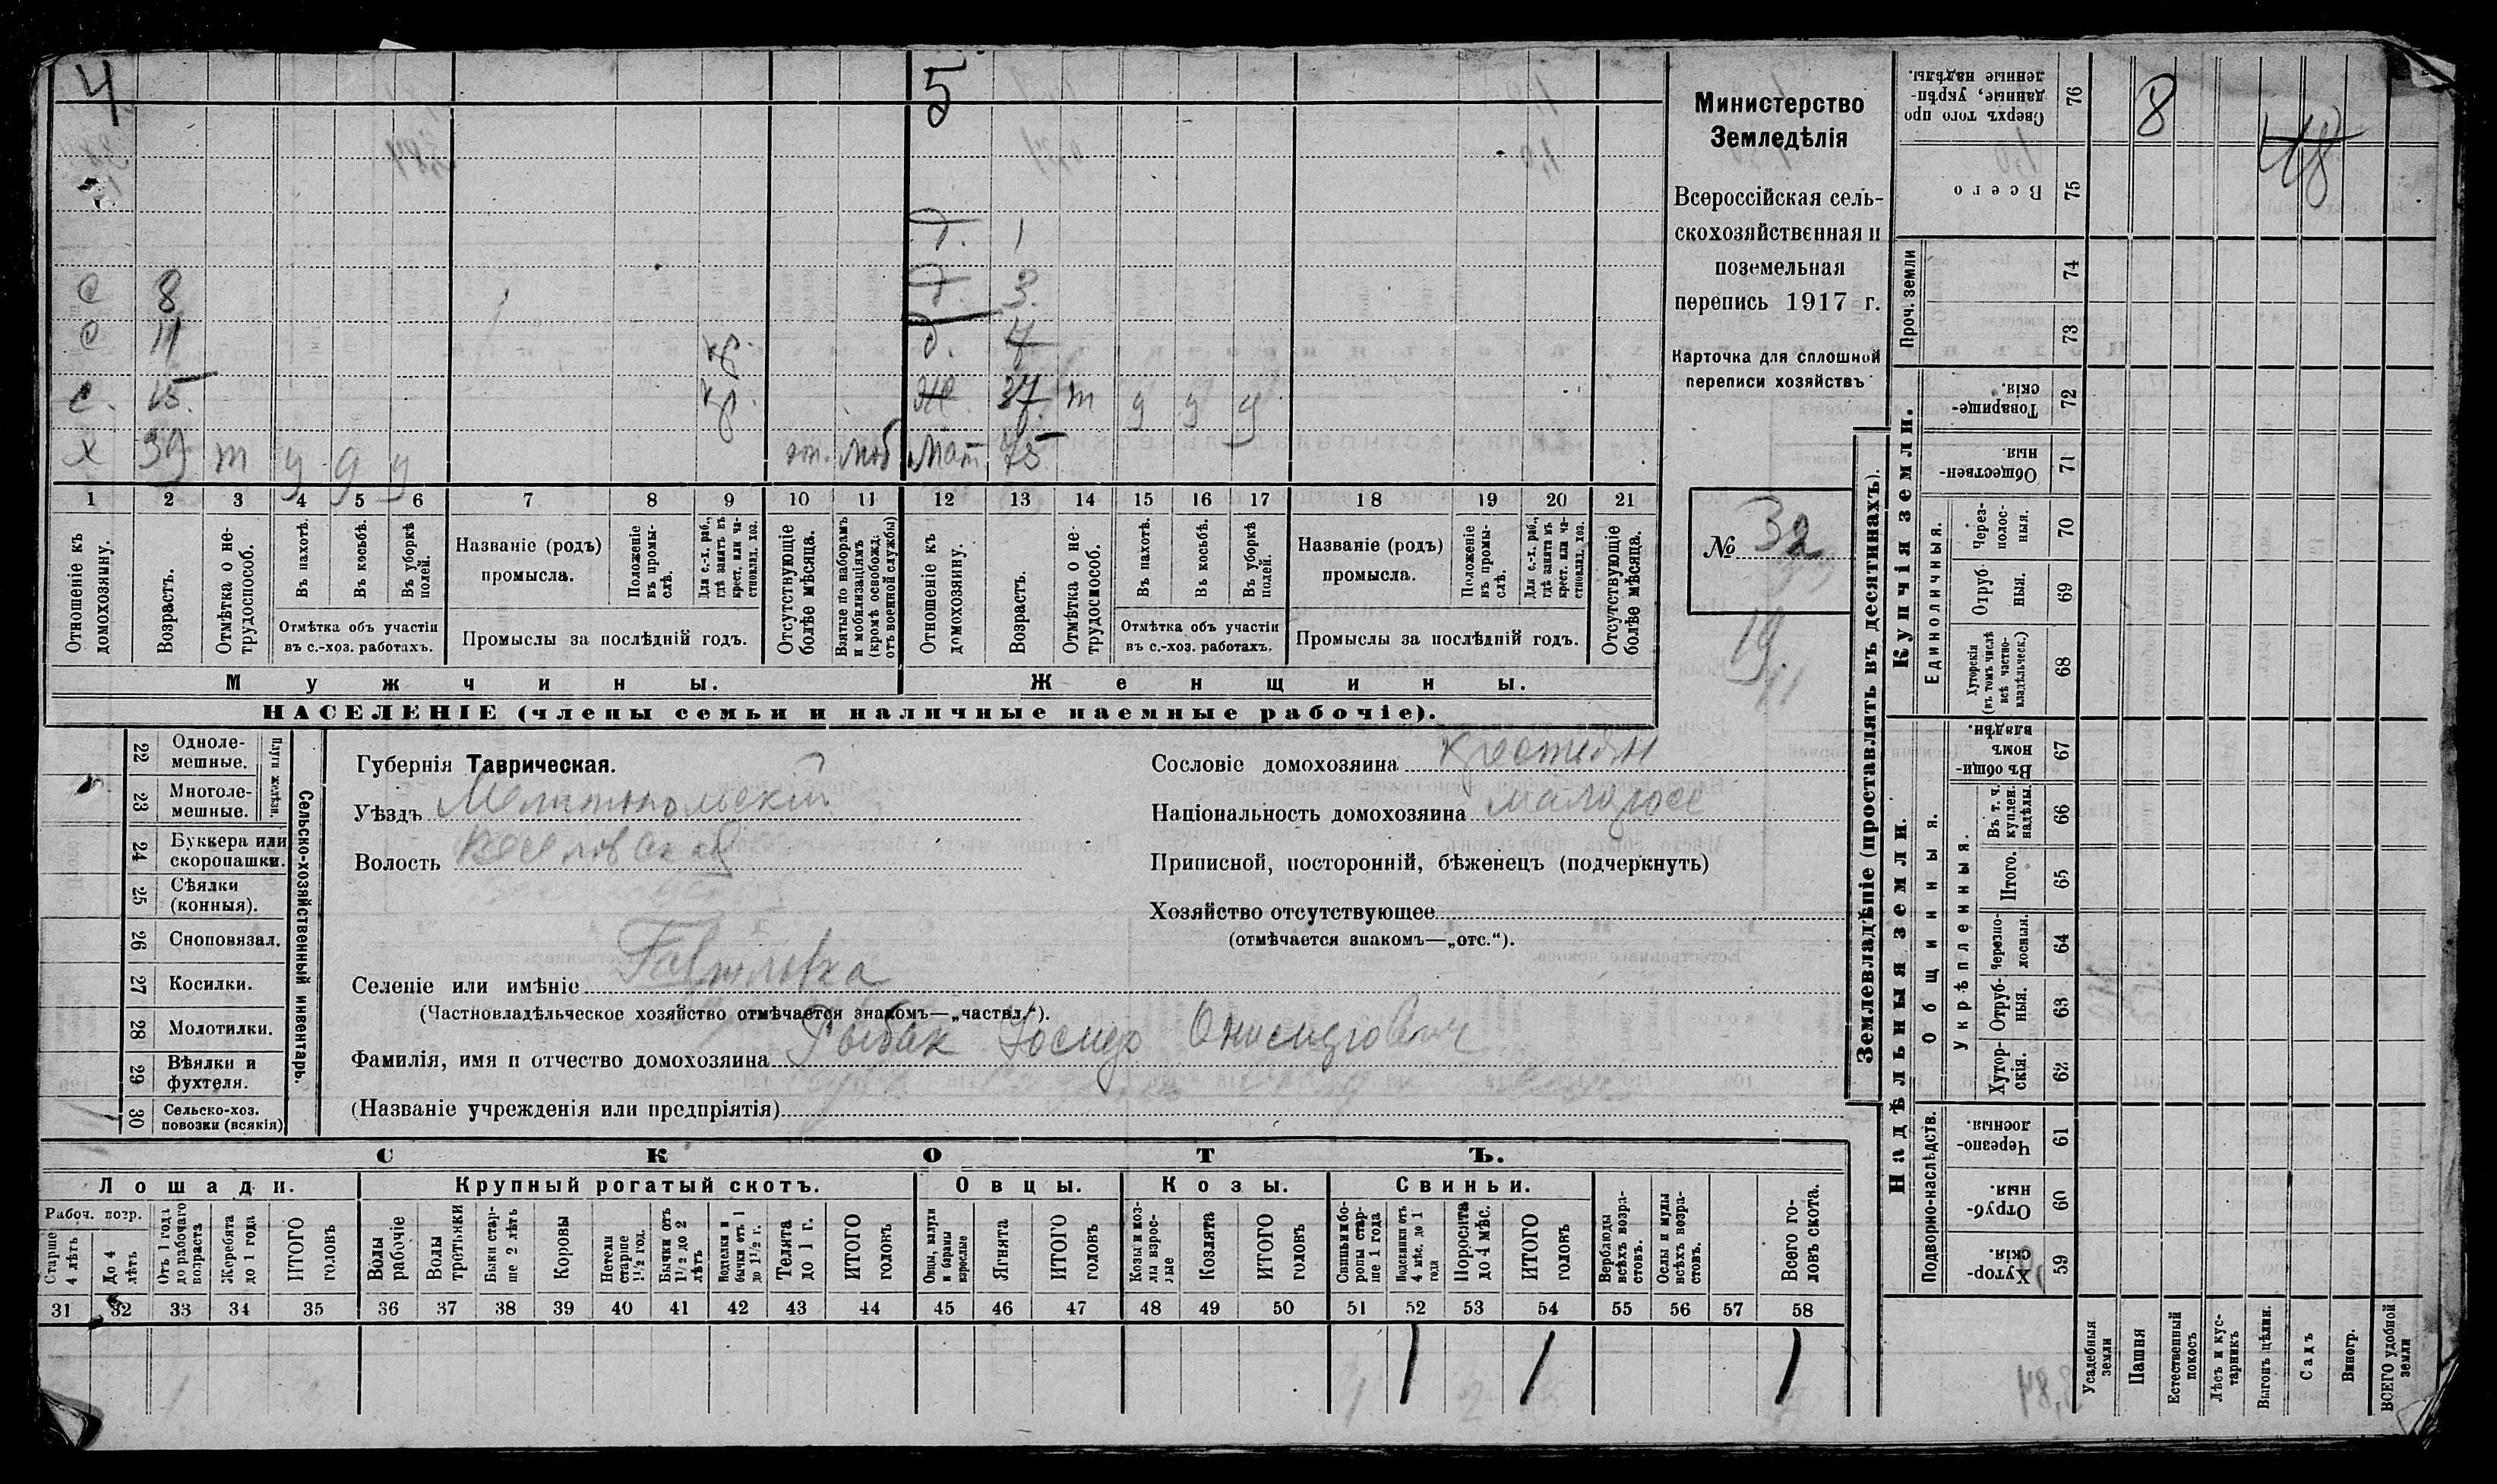 4
5
Т. 1
С 8
Т. 3.
С 11
кр.
д. 7
С. 15.
кр.
Ж. 37 т у у у
Х 39 т у у у
моб
Мат 75
1 2 3 4 5 6 7 8 9 10 11 12 13 14 15 16 17 18 19 20 21
Отношеніе къ домохозяину.
Возрастъ.
Отмѣтка о нетрудоспособ.
Въ пахотѣ.
Въ косьбѣ.
Въ уборкѣ полей.
Отмѣтка объ участіи въ с.-хоз. работахъ.
Названіе (родъ) промысла.
Положеніе въ промыслѣ.
Для с.-х. раб., гдѣ занятъ въ крест. или частновлад. хоз.
Промыслы за послѣдній годъ.
Отсутствующіе болѣе мѣсяца.
Взятые по наборамъ и мобилизаціямъ (кромѣ освобожд. отъ военной службы)
Отношеніе къ домохозяину.
Возрастъ.
Отмѣтка о нетрудоспособ.
Въ пахотѣ.
Въ косьбѣ.
Въ уборкѣ полей.
Отмѣтка объ участіи въ с.-хоз. работахъ.
Названіе (родъ) промысла.
Положеніе въ промыслѣ.
Для с.-х. раб., гдѣ занята въ крест. или частновлад. хоз.
Промыслы за послѣдній годъ.
Отсутствующіе болѣе мѣсяца.
Мужчины.
Женщины.
НАСЕЛЕНІЕ (члены семьи и наличные наемные рабочіе).
Министерство
Земледѣлія
Всероссійская сель-
скохозяйственная и
поземельная
перепись 1917 г.
Карточка для сплошной
переписи хозяйствъ
№ 32
19.
22 Одноле-
мешные.
23 Многоле-
мешные.
Плуги желѣзн.
24 Буккера или
скоропашки.
25 Сѣялки
(конныя).
26 Сноповязал.
27 Косилки.
28 Молотилки.
29 Вѣялки и
фухтеля.
30 Сельско-хоз.
повозки (всякія)
Сельско-хозяйственный инвентарь.
Губернія Таврическая.
Уѣздъ Мелитопольскій
Волость Веселовская
Селеніе или имѣніе Гавриловка
(Частновладѣльческое хозяйство отмѣчается знакомъ—„частвл.“).
Фамилія, имя и отчество домохозяина Рыбак Иосиф Онисимович
(Названіе учрежденія или предпріятія)
Сословіе домохозяина крестьян
Національность домохозяина малоросс
Приписной, посторонній, бѣженецъ (подчеркнуть)
Хозяйство отсутствующее
(отмѣчается знакомъ—„отс.“).
СКОТЪ.
Лошади.
Крупный рогатый скотъ.
Овцы.
Козы.
Свиньи.
Рабоч. возр.
Старше 4 лѣтъ
До 4 лѣтъ
Отъ 1 года до рабочаго возраста
Жеребята до 1 года
ИТОГО головъ
Волы рабочіе
Волы третьяки
Быки старше 2 лѣтъ
Коровы
Нетели старше 1½ год.
Бычки отъ 1½ до 2 лѣтъ
Водѣлки и бычки отъ 1 до 1½ г.
Телята до 1 г.
ИТОГО головъ
Овцы, валухи и бараны взрослые
Ягнята
ИТОГО головъ
Козы и козлы взрослые
Козлята
ИТОГО головъ
Свиньи и боровы старше 1 года
Подсвинки отъ 4 мѣс. до 1 года
Поросята до 4 мѣс.
ИТОГО головъ
Верблюды всѣхъ возрастовъ.
Ослы и мулы всѣхъ возрастовъ.
Всего головъ скота.
31 32 33 34 35 36 37 38 39 40 41 42 43 44 45 46 47 48 49 50 51 52 53 54 55 56 57 58
1 1 1
Землевладѣніе (проставлять въ десятинахъ).
Надѣльныя земли.
Купчія земли.
Проч. земли
Сверхъ того проданные, укрѣпленные надѣлы. 76
Всего 75
74
73
Товарищескія. 72
Общественныя. 71
Единоличныя.
Черезполосныя. 70
Отрубныя. 69
Хуторскія (въ томъ числѣ всѣ частновладѣльческ.) 68
Общинныя.
Въ общинномъ владѣн. 67
Укрѣпленныя.
Въ т. ч. куплен. надѣлы. 66
Итого. 65
Черезполосныя. 64
Отрубныя. 63
Хуторскія. 62
Подворно-наслѣдств.
Черезполосныя. 61
Отрубныя. 60
Хуторскія. 59
Усадебныя земли
Пашня
Естественный покосъ
Лѣсъ и кустарникъ
Выгонъ цѣлин.
Садъ
Виногр.
ВСЕГО удобной земли
8
48